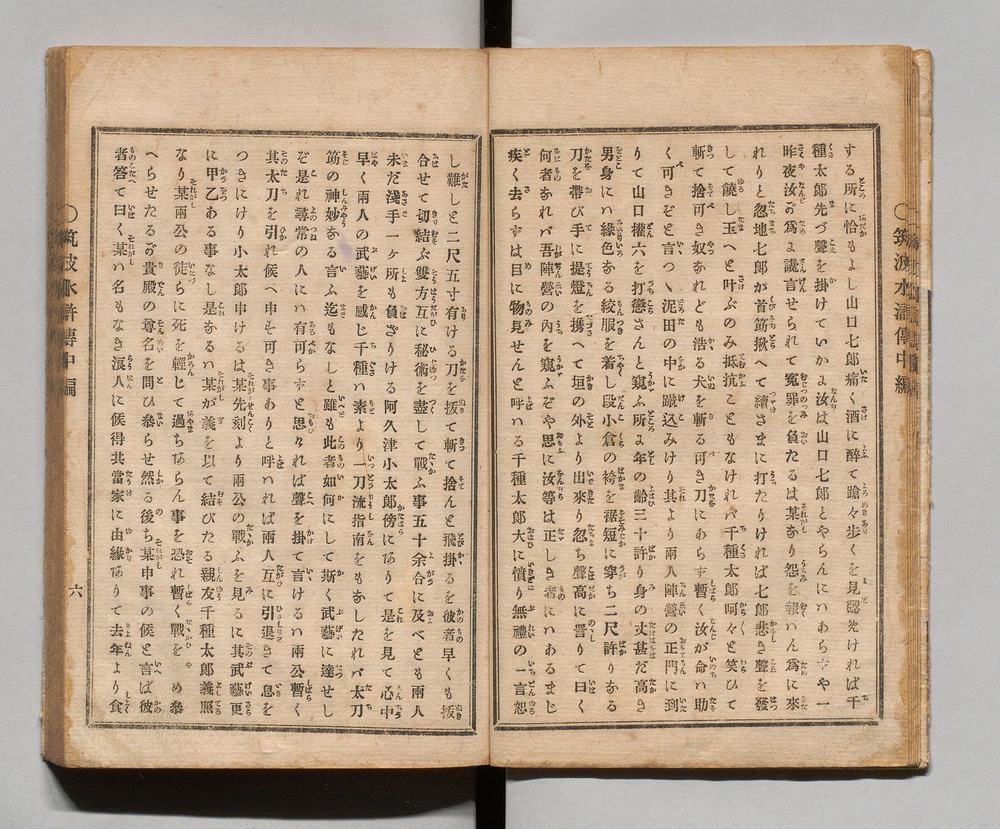 筑波水滸傳中編
する所に恰もよし山口七郎痛く酒に醉て蹌々歩くを見認めければ千
種太郎先づ聲を掛けていかに汝は山口七郎とやらんにハあらずや一
昨夜汝が爲に讒言せられて寃罪を負たるは某なり怨を報ハん爲に來
れりと忽地七郎が首筋揪へて續さまに打たりければ七郎悲き聲を發
して饒し玉へと叶ぶのみ抵抗こともなければバ千種太郎呵々と笑ひて
斬て捨可き奴なれども浩る犬を斬る可き刀にあらず暫く汝が命ハ助
く可きぞと言つヽ泥田の中に蹴込みけり其より兩人陣營の正門に到
りて山口權六を打懲さんと窺ふ所に年の齡三十許り身の丈甚だ高き
男身にハ緑色なる絞服を着し段小倉の袴を裾短に穿ち二尺許りなる
刀を帶び手に提燈を携へて垣の外より出來り忽ち聲高に詈りて曰く
何者なれバ吾陣營の內を窺ふぞや思ふに汝等は正しき者にハあるまじ
疾く去らずは目に物見せんと呼ハる千種太郎大に憤り無禮の一言恕
し難しと二尺五寸有ける刀を拔て斬て捨んと飛掛るを彼者早くも拔
合せて切結ぶ雙方互に秘術を盡して戰ふ事五十余合に及べども兩人
未だ淺手一ヶ所も負ざりける阿久津小太郎傍にありて是を見て心中
早く兩人の武藝を感じ千種ハ素より一刀流指南をもなしたれバ太刀
筋の神妙なる言ふ迄もなしと雖も此者如何にして斯く武藝に達せし
ぞ是れ尋常の人にハ有可らずと思ければ聲を掛て言けるハ兩公暫く
其太刀を引れ候へ申す可き事ありと呼ハれば兩人互に引退きて息を
つきにけり小太郎申けるは某先刻より兩公の戰ふを見るに其武藝更
に甲乙ある事なし是なるハ某が義を以て結びたる親友千種太郎義照
なり某兩公の徒らに死を輕じて過ちあらん事を恐れ暫く戰を やめ參
へらせたるが貴殿の尊名を問ひ參らせ然る後ち某申事の候と言ば彼
者答て曰く某ハ名もなき浪人に候得共當家に由緣ありて去年より食
筑波水滸傳中編
六